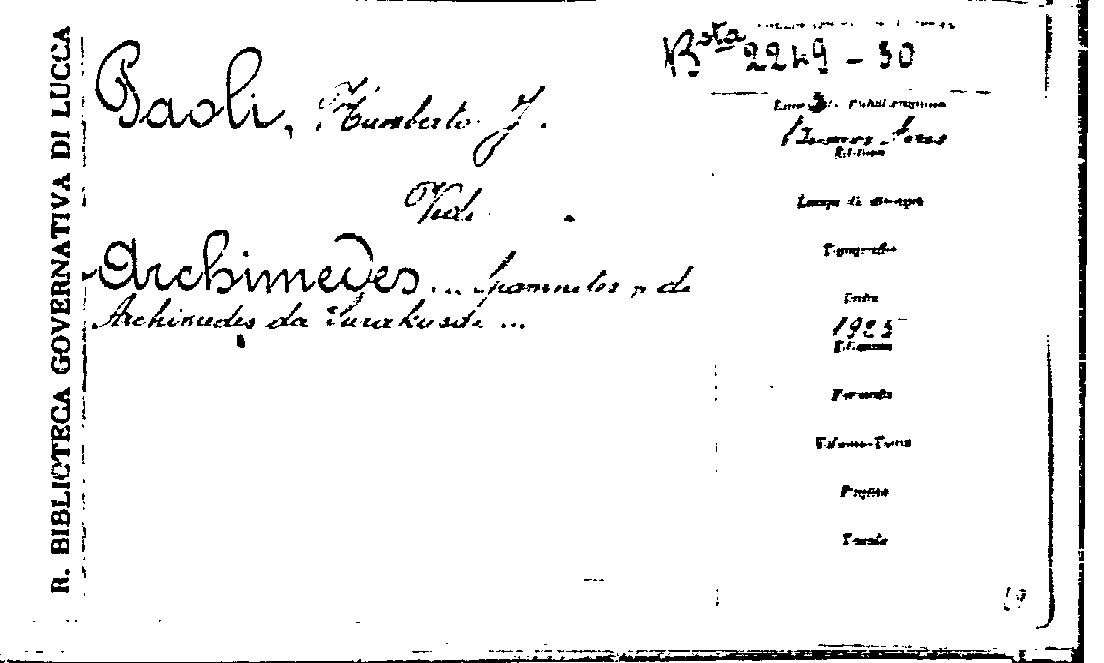 R. BIBLIOTECA GOVERNATIVA DI LUCCA
Bsta 2249 - 50
Paoli, Humberto J.
Luogo di Pubblicazione
Buenos Aires
Edizione
Vedi
Luogo di stampa
Tipografia
Archimedes ... de
Archimedes da ...
Data
1925
Formato
Volume-Tomo
Pagine
Tavole
19